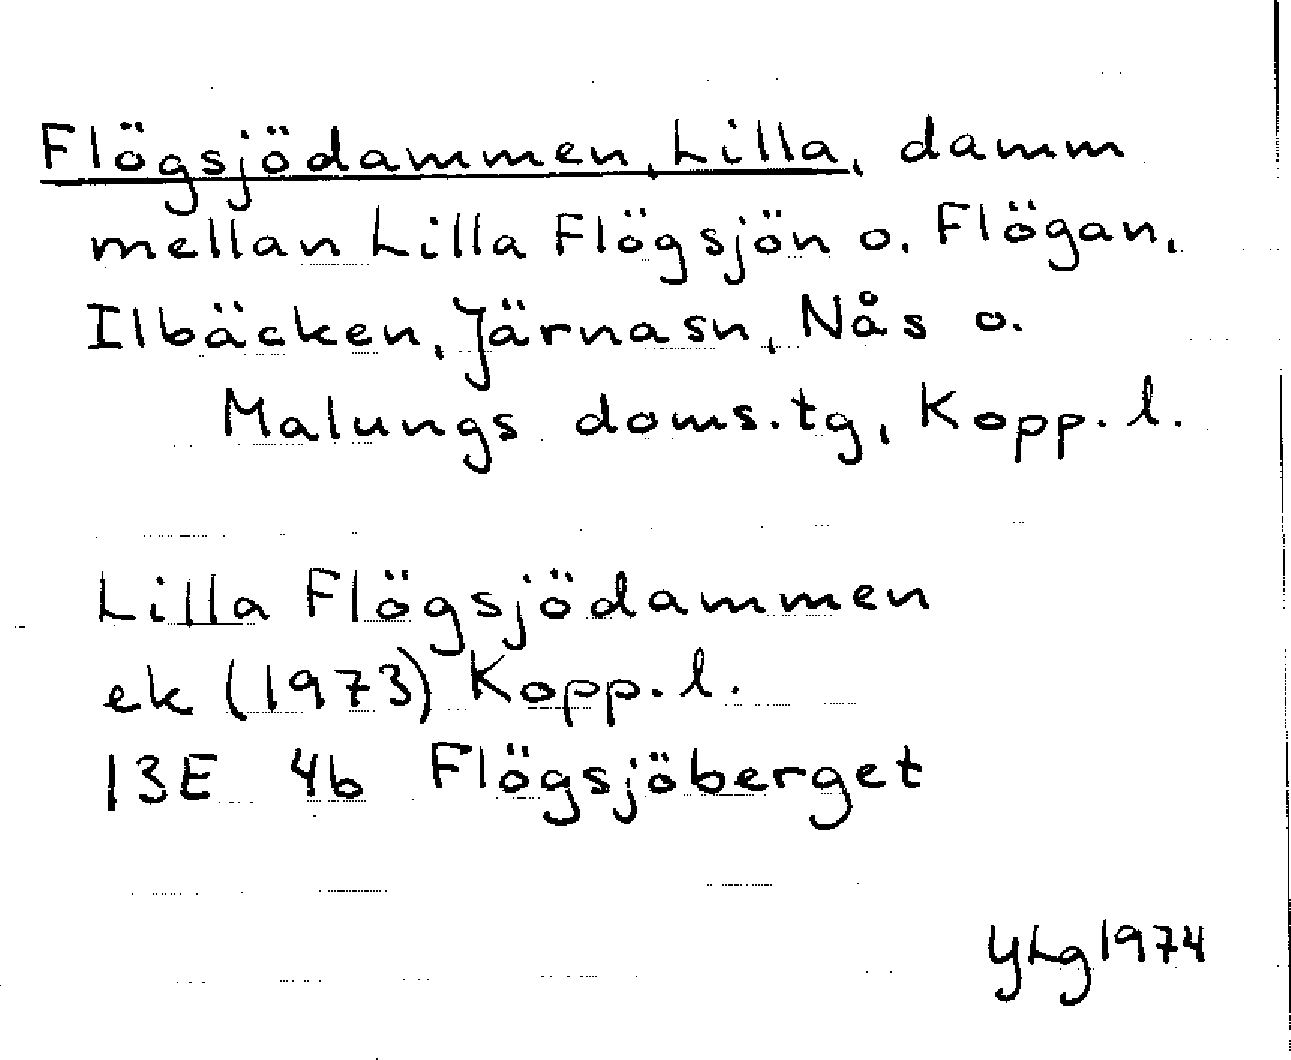 Flögsjödammen, Lilla, damm
mellan Lilla Flögsjön o. Flögan,
Ilbäcken, Järnasn, Nås o.
Malungs doms.tg, Kopp. l.
Lilla Flögsjödammen
ek (1973) Kopp. l.
13E 4b Flögsjöberget
YLg 1974